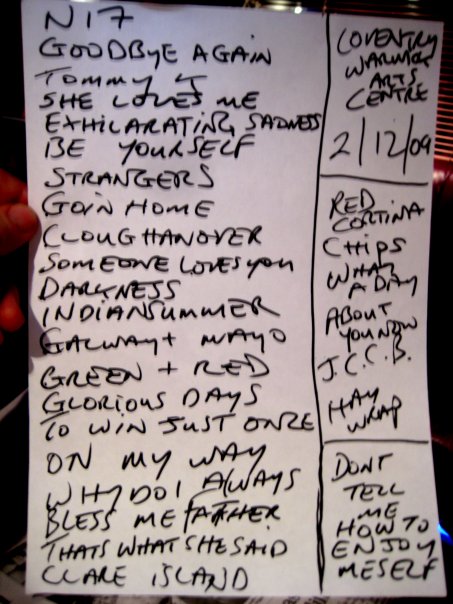 N17
GOODBYE AGAIN
TOMMY K
SHE LOVES ME
EXHILARATING SADNESS
BE YOURSELF
STRANGERS
GOIN HOME
CLOUGHANOVER
SOMEONE LOVES YOU
DARKNESS
INDIAN SUMMER
GALWAY + MAYO
GREEN + RED
GLORIOUS DAYS
TO WIN JUST ONCE
ON MY WAY
WHY DO I ALWAYS
BLESS ME FATHER
THATS WHAT SHE SAID
CLARE ISLAND
COVENTRY
WARWICK
ARTS
CENTRE
2/12/09
RED
CORTINA
CHIPS
WHAT
A DAY
ABOUT
YOU NOW
J.C.B.
HAY
WRAP
DONT
TELL
ME
HOW TO
ENJOY
MESELF